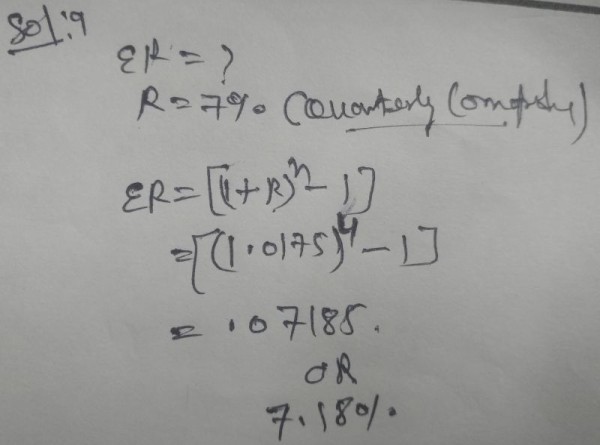 Sol:9
ER = ?
R = 7% (Quarterly Compute)
ER = [(1+R)^n - 1]
= [(1.0175)^4 - 1]
= .07185.
OR
7.18%.